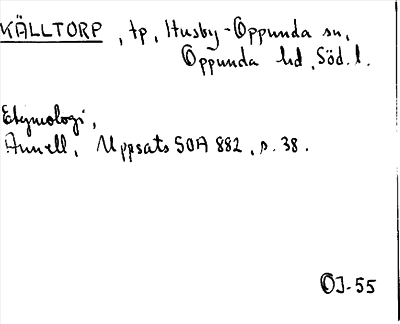 KÄLLTORP, tp, Husby-Oppunda sn,
Oppunda hd, Söd.l.
Etymologi,
Annell, Uppsats SOA 882, s. 38.
OJ-55